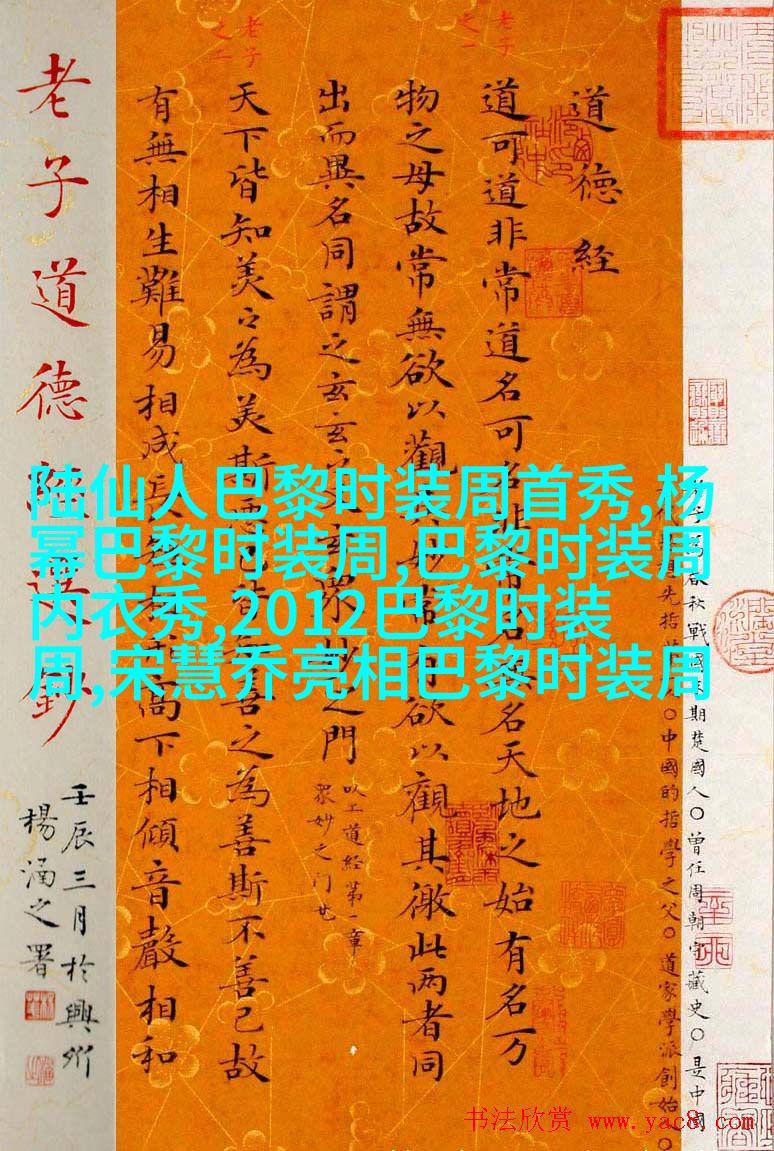 陆仙人巴黎时装周首秀,杨
幂巴黎时装周,巴黎时装周
内衣秀,2012巴黎时装
周,宋慧乔亮相巴黎时装周
春秋戰國期楚國人〇曾任周朝守藏史〇是中國
先〇中國的哲學之父〇道家學派創始〇
道德经
老子之一
道可道非常道名可名非常名無名天地之始有名万
物之母故常無欲以觀其妙常有欲以觀其徼此两者同
出而異名同謂之玄玄之又玄衆妙之門
以上道经第一章
衆妙之门
老子之二
天下皆知美之為美斯皆善之為善斯不善已故
有無相生難易相成長相高下相傾音聲相和
老子道德陆選鈔
壬辰三月於興州
楊涵之署
书法欣赏 www.yac8.com